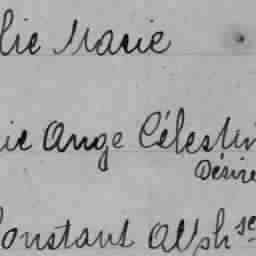 lie Marie
ie Ange Célestin
Désiré
Constant Alphse